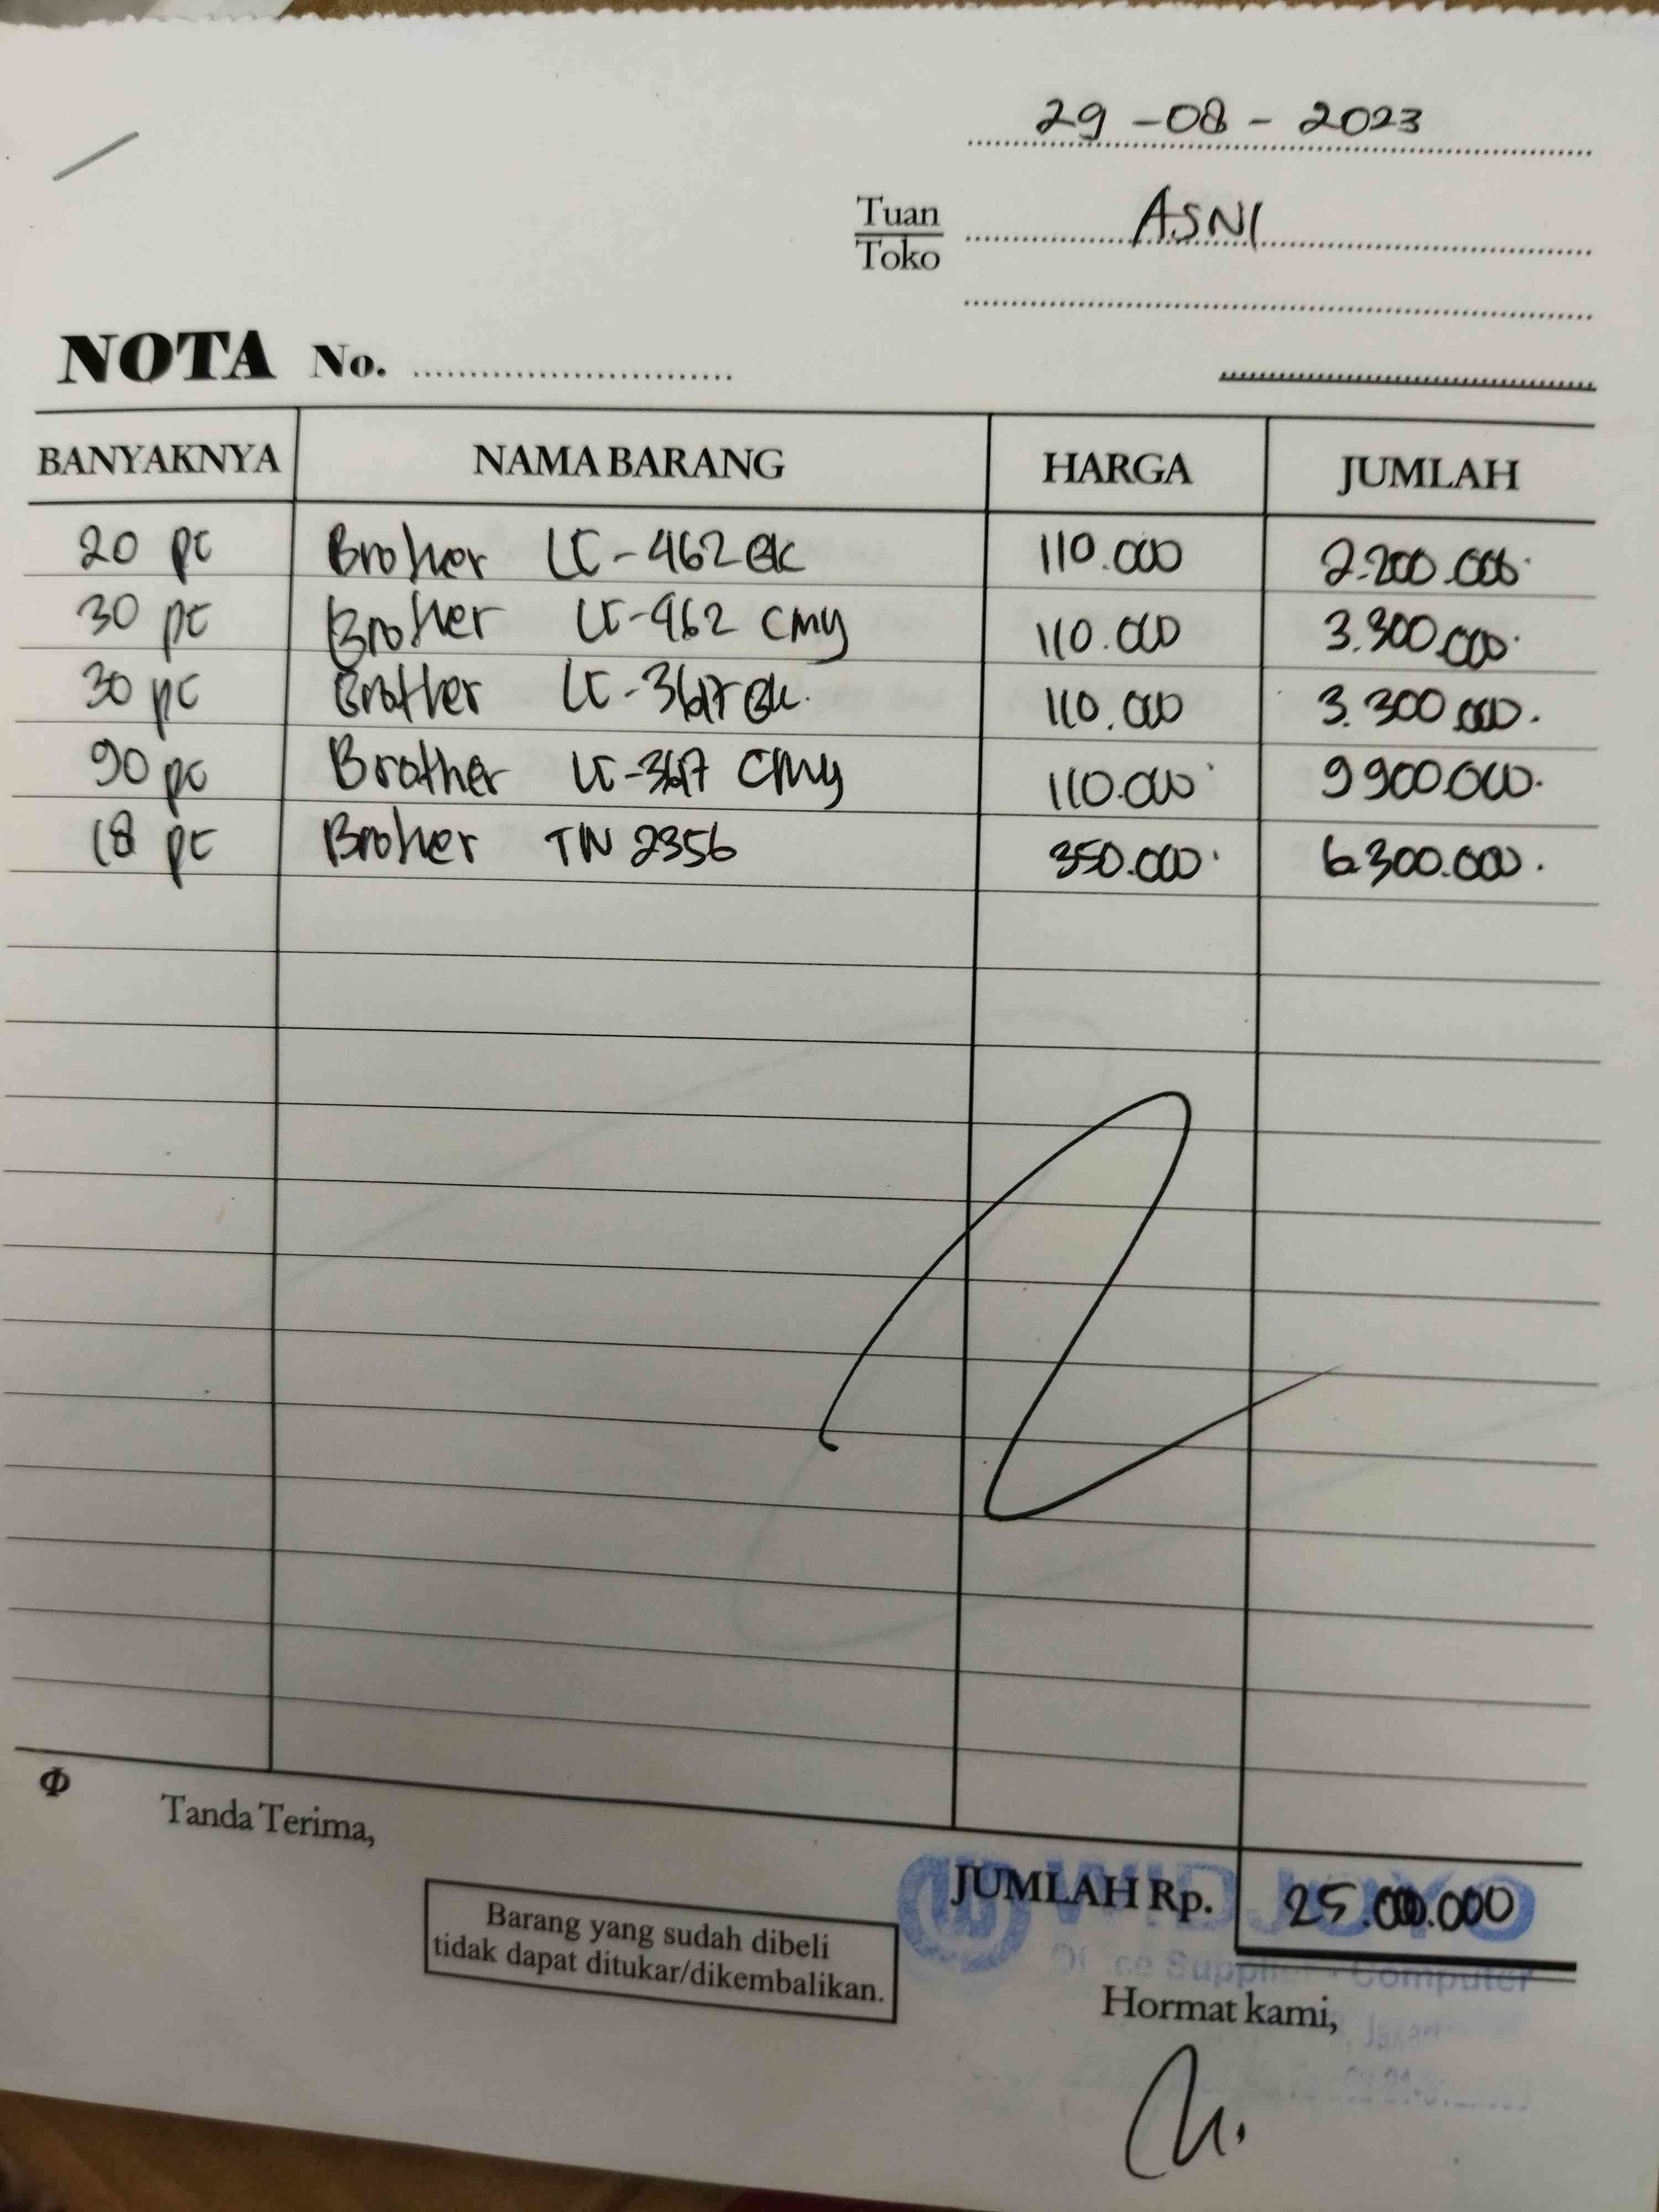 29 - 08 - 2023
Tuan
Toko
ASNI
NOTA No.
BANYAKNYA NAMA BARANG HARGA JUMLAH
20 pc Brother LC-462 BK 110.000 2.200.000
30 pc Brother LC-462 CMY 110.000 3.300.000
30 pc Brother LC-3617 BK. 110.000 3.300.000.
90 pc Brother LC-3617 CMY 110.000 9.900.000.
18 pc Brother TN 2356 350.000 6.300.000.
Tanda Terima,
JUMLAH Rp. 25.000.000
WIDJOYO
Office Supplier - Computer
Barang yang sudah dibeli
tidak dapat ditukar/dikembalikan.
Hormat kami,